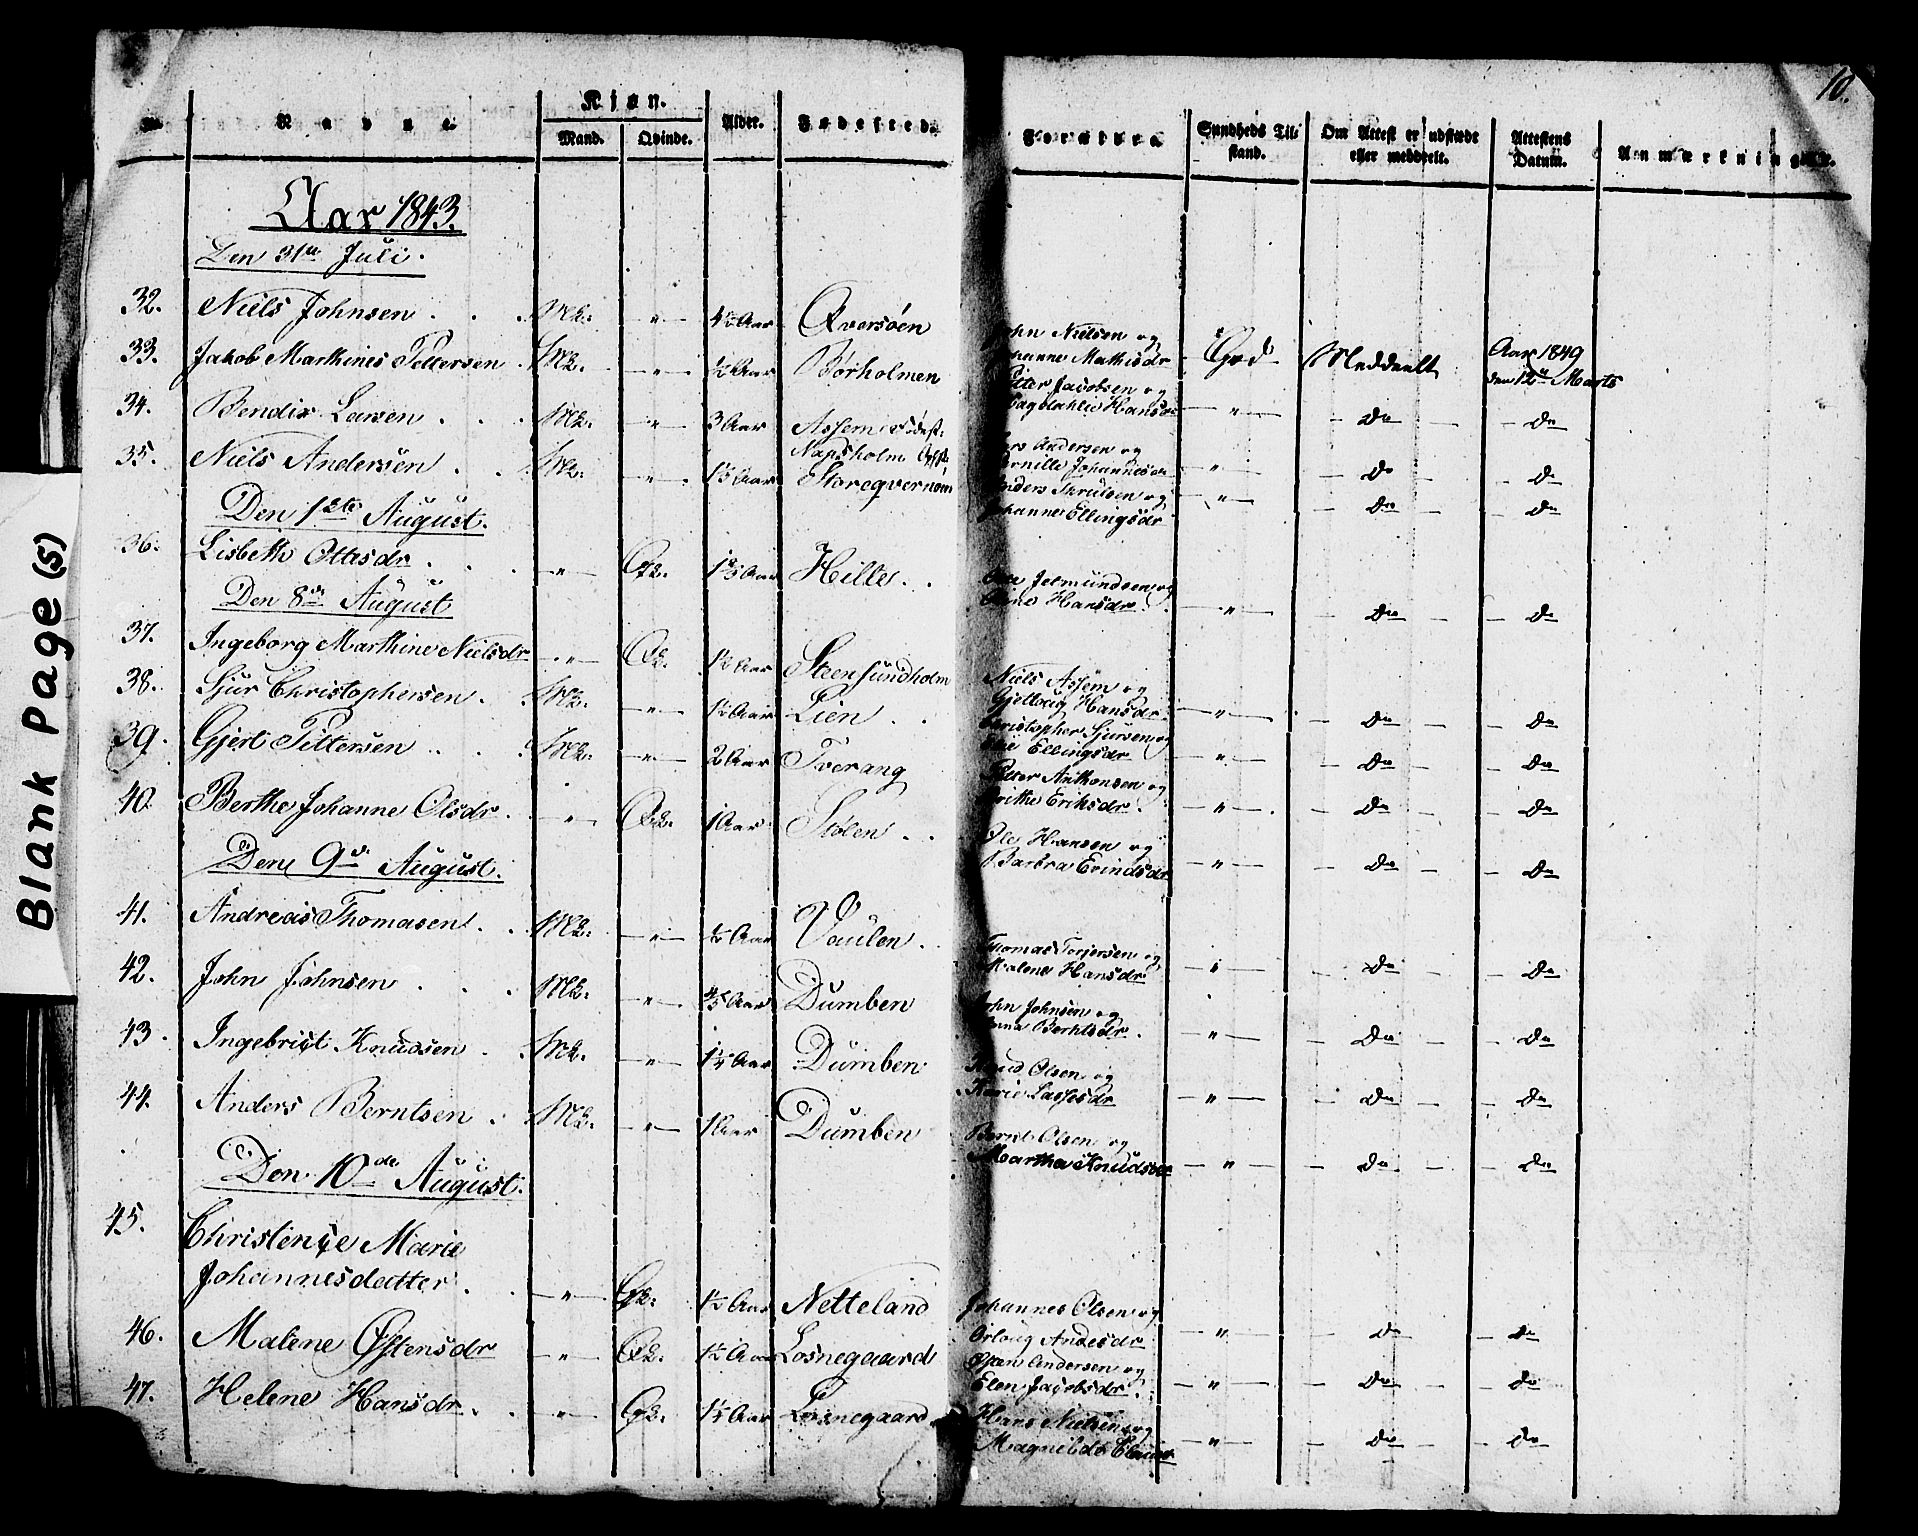 10.
No. Navne. Kjøn. Alder. Fødested. Forældre Sundheds Til- Om Attest er udstædt Attestens Anmærkninger.
Mand. Qvinde. stand. eller meddeelt. Datum.
Aar 1843.
Den 31te Juli.
32. Niels Johnsen . . . Mk. „ Aar Qversöen
John Nielsen og
Johanne Mathisdr God Meddeelt Aar 1849
den 12te Marts
33. Jakob Marthines Pettersen . Mk. „ ½ Aar Børholmen
Petter Jacobsen og
Hansdr „ Do Do
34. Bendix Larsen . . . Mk. „ 3 Aar
Lars Andersen og
Pernille Johannesdr „ Do Do
35. Niels Andersen . . Mk. „ Aar Storeqvernøen
Anders og
Johanne Ellingsdr „ Do Do
Den 1ste August.
36. Lisbeth Ottesdr . . . „ Qk. Aar Hille . .
Otte og
Hansdr . „ Do Do
Den 8de August
37. Ingeborg Marthine Nielsdr „ Qk. Aar Steensundholm
Niels Assem og
Gjetloug Hansdr „ Do Do
38. Sjur Christophersen . . Mk. „ Aar Lien . .
Christopher Sjursen og
Ellingsdr „ Do Do
39. Gjert Pettersen . . . Mk. „ 2 Aar Tverang
Petter Anthonsen og
Brithe Eriksdr . „ Do Do
40. Berthe Johanne Olsdr . „ Qk. 1 Aar Stølen . .
Ole Hansen og
Barbra Evindsdr „ Do Do
Den 9de August.
41. Andreas Thomasen . . Mk. „ Aar Vaulen .
Thomas Torjersen og
Malene Hansdr „ Do Do
42. John Johnsen . . . Mk. „ Aar Dumben
John Johnsen og
Anna Berntsdr . „ Do Do
43. Ingebrigt Knudsen . . Mk. „ Aar Dumben
Knud Olsen og
Karie Lassesdr „ Do Do
44. Anders Berntsen . Mk. „ 1 Aar Dumben
Bernt Olsen og
Martha Knudsdr „ Do Do
Den 10de August.
45. Christense Marie
Johannesdatter . „ Qk. 1½ Aar Netteland
Johannes Olsen og
Orloug Andersdr „ Do Do
46. Malene Østensdr „ Qk. 1½ Aar Losnegaard
Østen Andersen og
Elen Jacobsdr . „ Do Do
47. Helene Hansdr . . „ Qk. Aar Losnegaard
Hans Nielsen og
Magnilde „ Do Do
Blank Page(s)